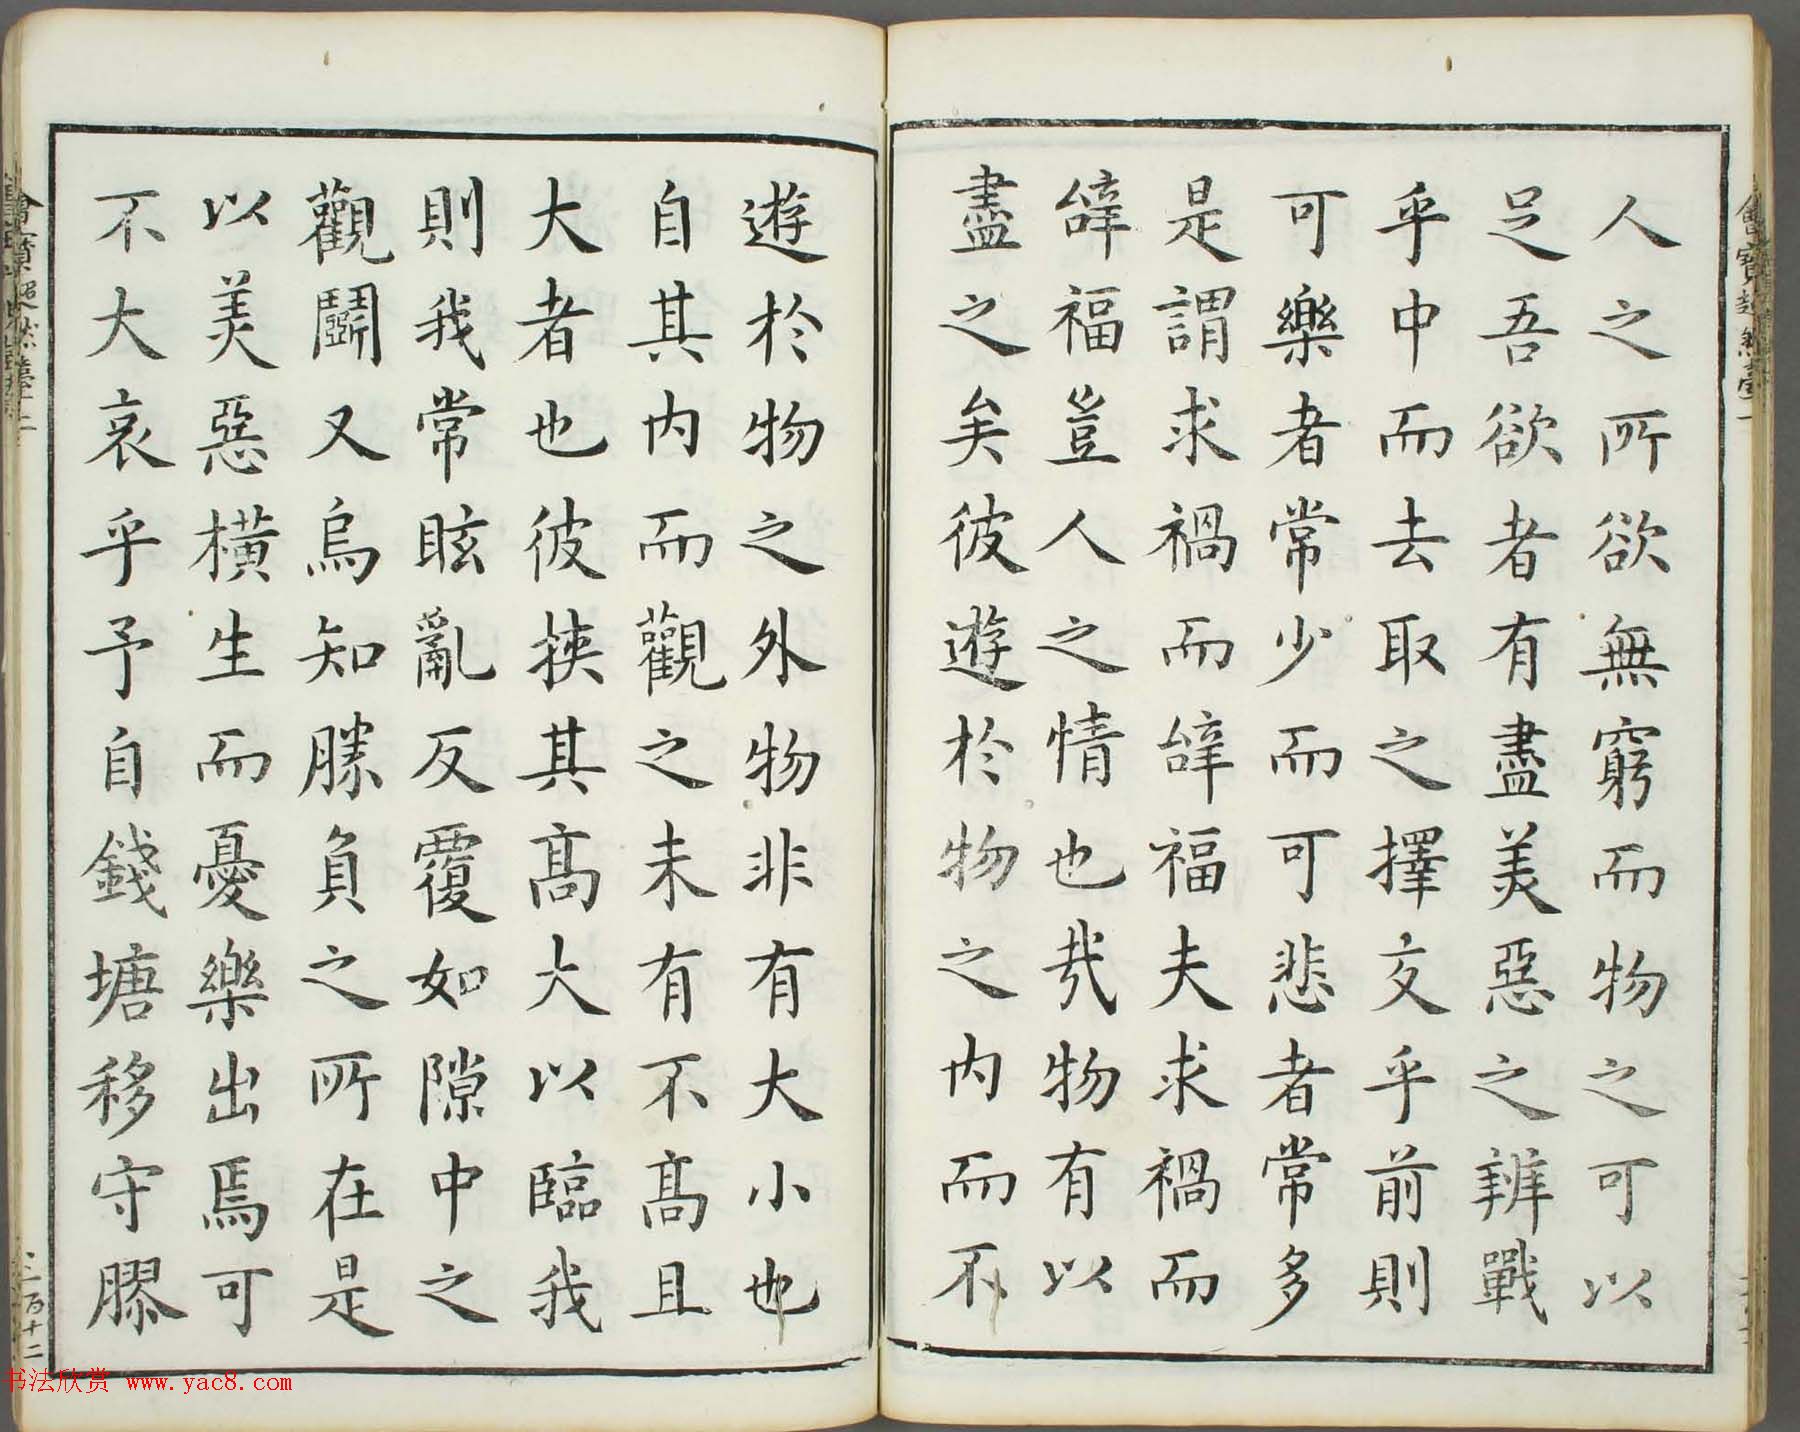 人之所欲無窮而物之可以
足吾欲者有盡美惡之辨戰
乎中而去取之擇交乎前則
可樂者常少而可悲者常多
是謂求禍而辭福夫求禍而
辭福豈人之情也哉物有以
盡之矣彼遊於物之内而不
遊於物之外物非有大小也
自其内而觀之未有不髙且
大者也彼挾其髙大以臨我
則我常眩亂反覆如隙中之
觀鬬又烏知勝負之所在是
以美惡橫生而憂樂出焉可
不大哀乎予自錢塘移守膠
三百十二
书法欣赏 www.yac8.com